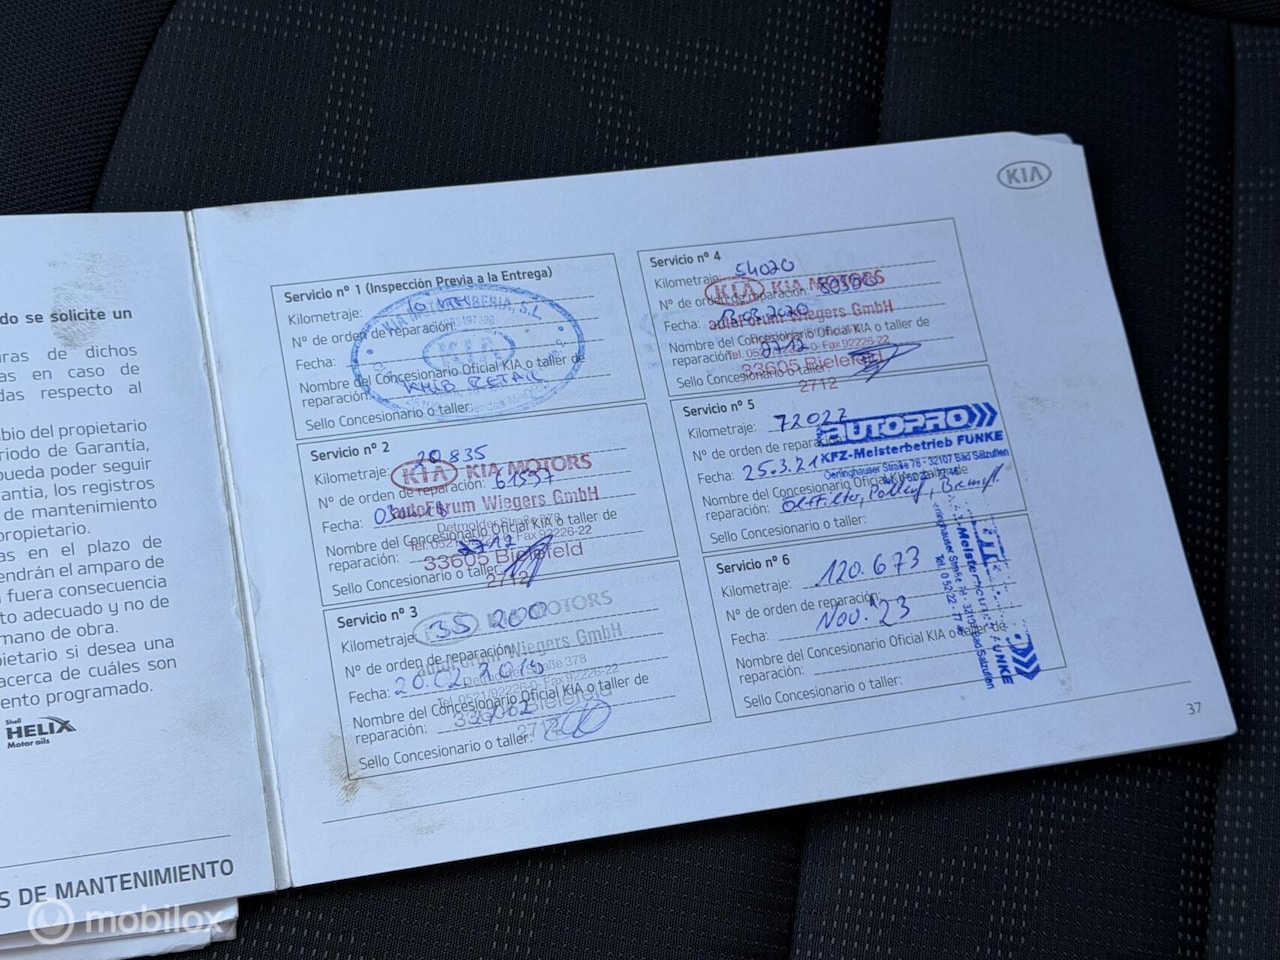 do se solicite un
uras de dichos
as en caso de
das respecto al
bio del propietario
riodo de Garantía,
pueda poder seguir
rantía, los registros
de mantenimiento
propietario.
as en el plazo de
endrán el amparo de
fuera consecuencia
to adecuado y no de
mano de obra.
pietario si desea una
acerca de cuáles son
ento programado.
Shell
HELIX
Motor oils
S DE MANTENIMIENTO
KIA
Servicio nº 1 (Inspección Previa a la Entrega)
Kilometraje: 10
Nº de orden de reparación:
Fecha:
Nombre del Concesionario Oficial KIA o taller de
reparación:
Sello Concesionario o taller:
KIA
Servicio nº 2
Kilometraje: 20835
KIA KIA MOTORS
Nº de orden de reparación: 61537
autoForum Wiegers GmbH
Fecha:
Detmolder Straße 378
Nombre del Concesionario Oficial KIA o taller de
Tel. 0521/92226-0 Fax 92226-22
reparación: 2712
33605 Bielefeld
Sello Concesionario o taller:
2712
Servicio nº 3
Kilometraje: 35 200
KIA MOTORS
Nº de orden de reparación:
autoForum Wiegers GmbH
Fecha:
Detmolder Straße 378
Nombre del Concesionario Oficial KIA o taller de
Tel. 0521/92226-0 Fax 92226-22
reparación:
33605 Bielefeld
Sello Concesionario o taller:
2712
Servicio nº 4
Kilometraje: 54020
KIA KIA MOTORS
Nº de orden de reparación:
autoForum Wiegers GmbH
Fecha: 13.03.2020
Nombre del Concesionario Oficial KIA o taller de
reparación: 2712
Tel. 0521/92226-0 Fax 92226-22
33605 Bielefeld
Sello Concesionario o taller:
2712
Servicio nº 5
Kilometraje: 72022
AUTOPRO
Nº de orden de reparación:
KFZ-Meisterbetrieb FUNKE
Fecha: 25.3.21
Oerlinghauser Straße 78 - 32107 Bad Salzuflen
Nombre del Concesionario Oficial KIA o taller de
reparación:
Sello Concesionario o taller:
Servicio nº 6
Kilometraje: 120.673
Nº de orden de reparación:
Fecha: Nov. 23
Nombre del Concesionario Oficial KIA o taller de
reparación:
Sello Concesionario o taller:
37
mobilox